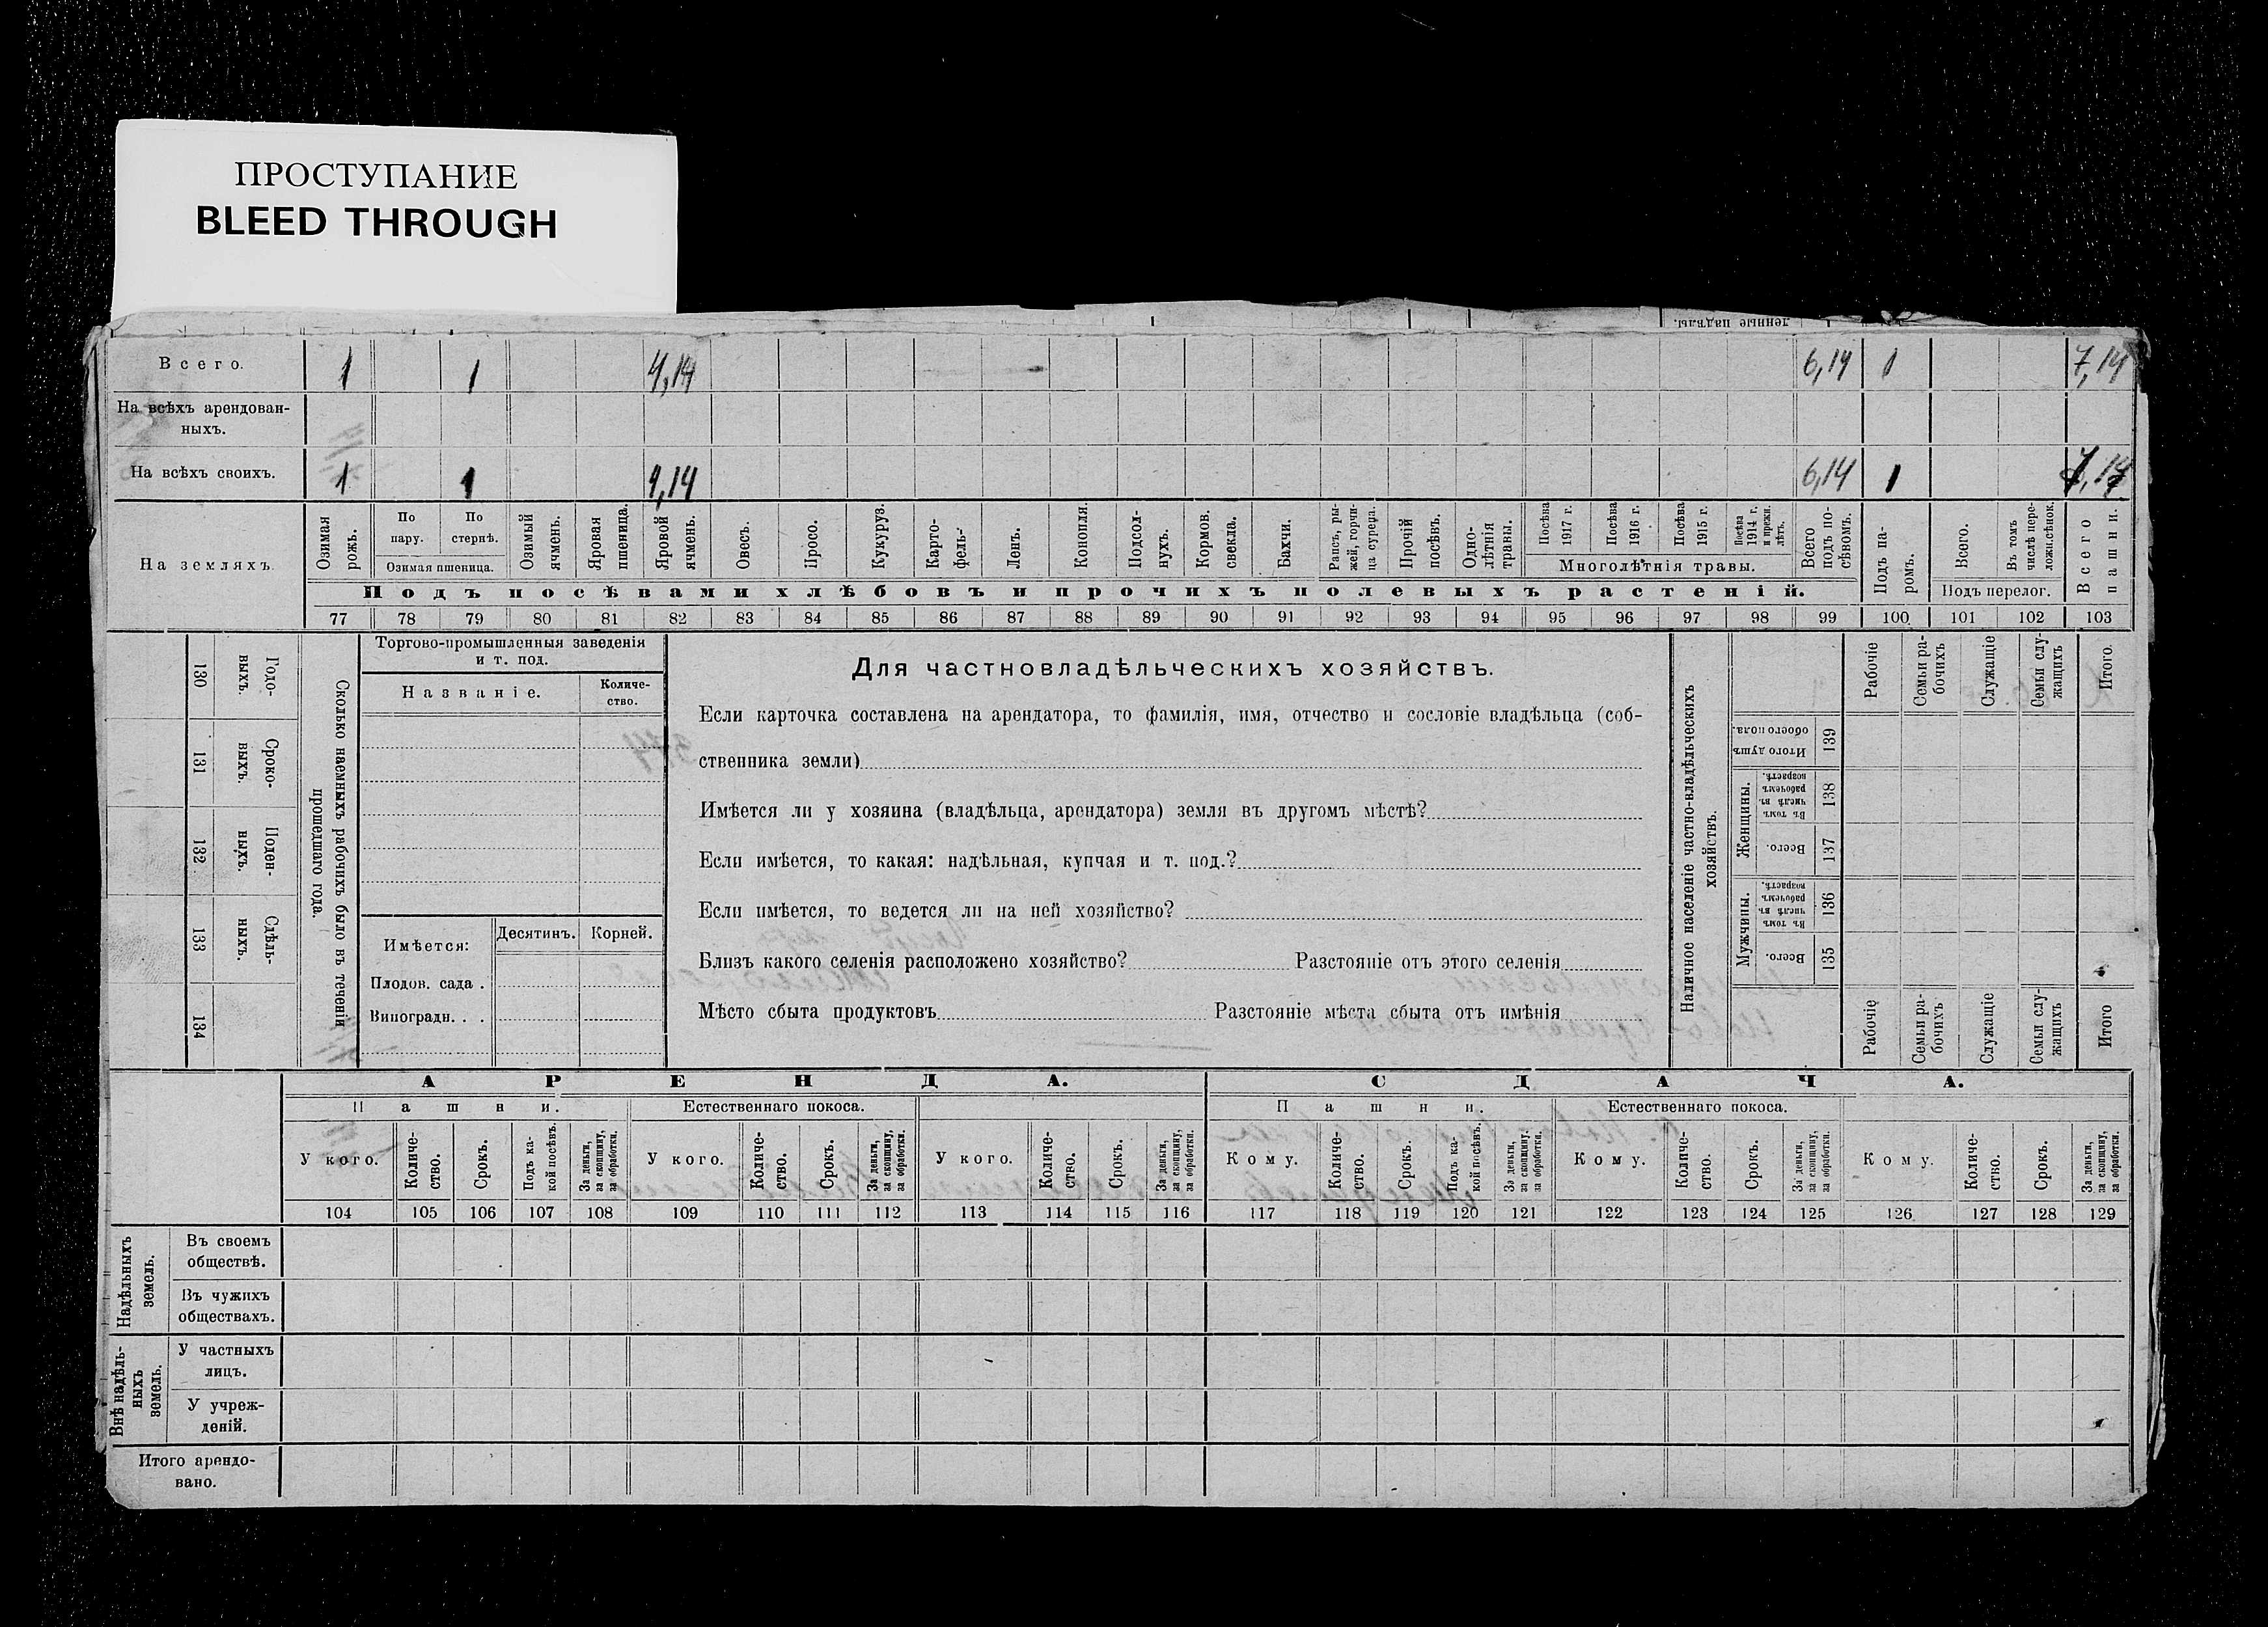 ПРОСТУПАНИЕ
BLEED THROUGH
денные надѣлы.
Всего. 1 1 4,14 6,14 1 7,14
На всѣхъ арендован-
ныхъ.
На всѣхъ своихъ. 1 1 4,14 6,14 1 7,14
На земляхъ.
Озимая рожь.
По пару.
По стернѣ.
Озимая пшеница.
Озимый ячмень.
Яровая пшеница.
Яровой ячмень.
Овесъ.
Просо.
Кукуруз.
Карто-
фель.
Ленъ.
Конопля.
Подсол-
нухъ.
Кормов. свекла.
Бахчи.
Рапсъ, ры-
жей, горчи-
ца сурепа.
Прочій посѣвъ.
Одно-
лѣтнія травы.
Посѣва 1917 г.
Посѣва 1916 г.
Посѣва 1915 г.
Посѣва 1914 г. и прежн. лѣтъ.
Многолѣтнія травы.
Всего подъ по-
сѣвомъ.
Подъ па-
ромъ.
Всего.
Въ томъ числѣ пере-
ложн.сѣнок.
Подъ перелог.
Всего пашни.
Подъ посѣвами хлѣбовъ и прочихъ полевыхъ растеній.
77 78 79 80 81 82 83 84 85 86 87 88 89 90 91 92 93 94 95 96 97 98 99 100 101 102 103
Сколько наемныхъ рабочихъ было въ теченіи
прошедшаго года.
Годо-
выхъ.
130
Сроко-
выхъ.
131
Поден-
ныхъ.
132
Сдѣль-
ныхъ.
133
134
Торгово-промышленныя заведенія
и т. под.
Названіе.
Количе-
ство.
Имѣется:
Десятинъ. Корней.
Плодов. сада .
Виноградн. . .
Для частновладѣльческихъ хозяйствъ.
Если карточка составлена на арендатора, то фамилія, имя, отчество и сословіе владѣльца (соб-
ственника земли)
Имѣется ли у хозяина (владѣльца, арендатора) земля въ другомъ мѣстѣ?
Если имѣется, то какая: надѣльная, купчая и т. под.?
Если имѣется, то ведется ли на ней хозяйство?
Близъ какого селенія расположено хозяйство? Разстояніе отъ этого селенія
Мѣсто сбыта продуктовъ Разстояніе мѣста сбыта отъ имѣнія
Наличное населеніе частно-владѣльческихъ
хозяйствъ.
Рабочіе
Семьи ра-
бочихъ
Служащіе
Семьи слу-
жащихъ
Итого.
Итого душъ
обоего пола.
139
Женщины.
Въ томъ числѣ въ рабочемъ возрастѣ.
138
Всего.
137
Мужчины.
Въ томъ числѣ въ рабочемъ возрастѣ.
136
Всего.
135
Рабочіе
Семьи ра-
бочихъ
Служащіе
Семьи слу-
жащихъ
Итого
АРЕНДА. СДАЧА.
Пашни. Естественнаго покоса. Пашни. Естественнаго покоса.
У кого.
Количе-
ство.
Срокъ.
Подъ ка-
кой посѣвъ.
За деньги,
за скопщину,
за обработки.
У кого.
Количе-
ство.
Срокъ.
За деньги,
за скопщину,
за обработки.
У кого.
Количе-
ство.
Срокъ.
За деньги,
за скопщину,
за обработки.
Кому.
Количе-
ство.
Срокъ.
Подъ ка-
кой посѣвъ.
За деньги,
за скопщину,
за обработки.
Кому.
Количе-
ство.
Срокъ.
За деньги,
за скопщину,
за обработки.
Кому.
Количе-
ство.
Срокъ.
За деньги,
за скопщину,
за обработки.
104 105 106 107 108 109 110 111 112 113 114 115 116 117 118 119 120 121 122 123 124 125 126 127 128 129
Надѣльныхъ
земель.
Въ своемъ
обществѣ.
Въ чужихъ
обществахъ.
Внѣ надѣль-
ныхъ
земель.
У частныхъ
лицъ.
У учреж-
деній.
Итого арендо-
вано.